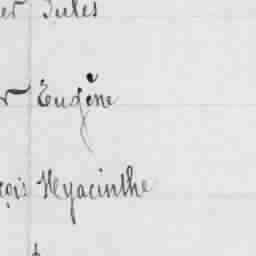 er Jules
r Eugène
çois Hyacinthe